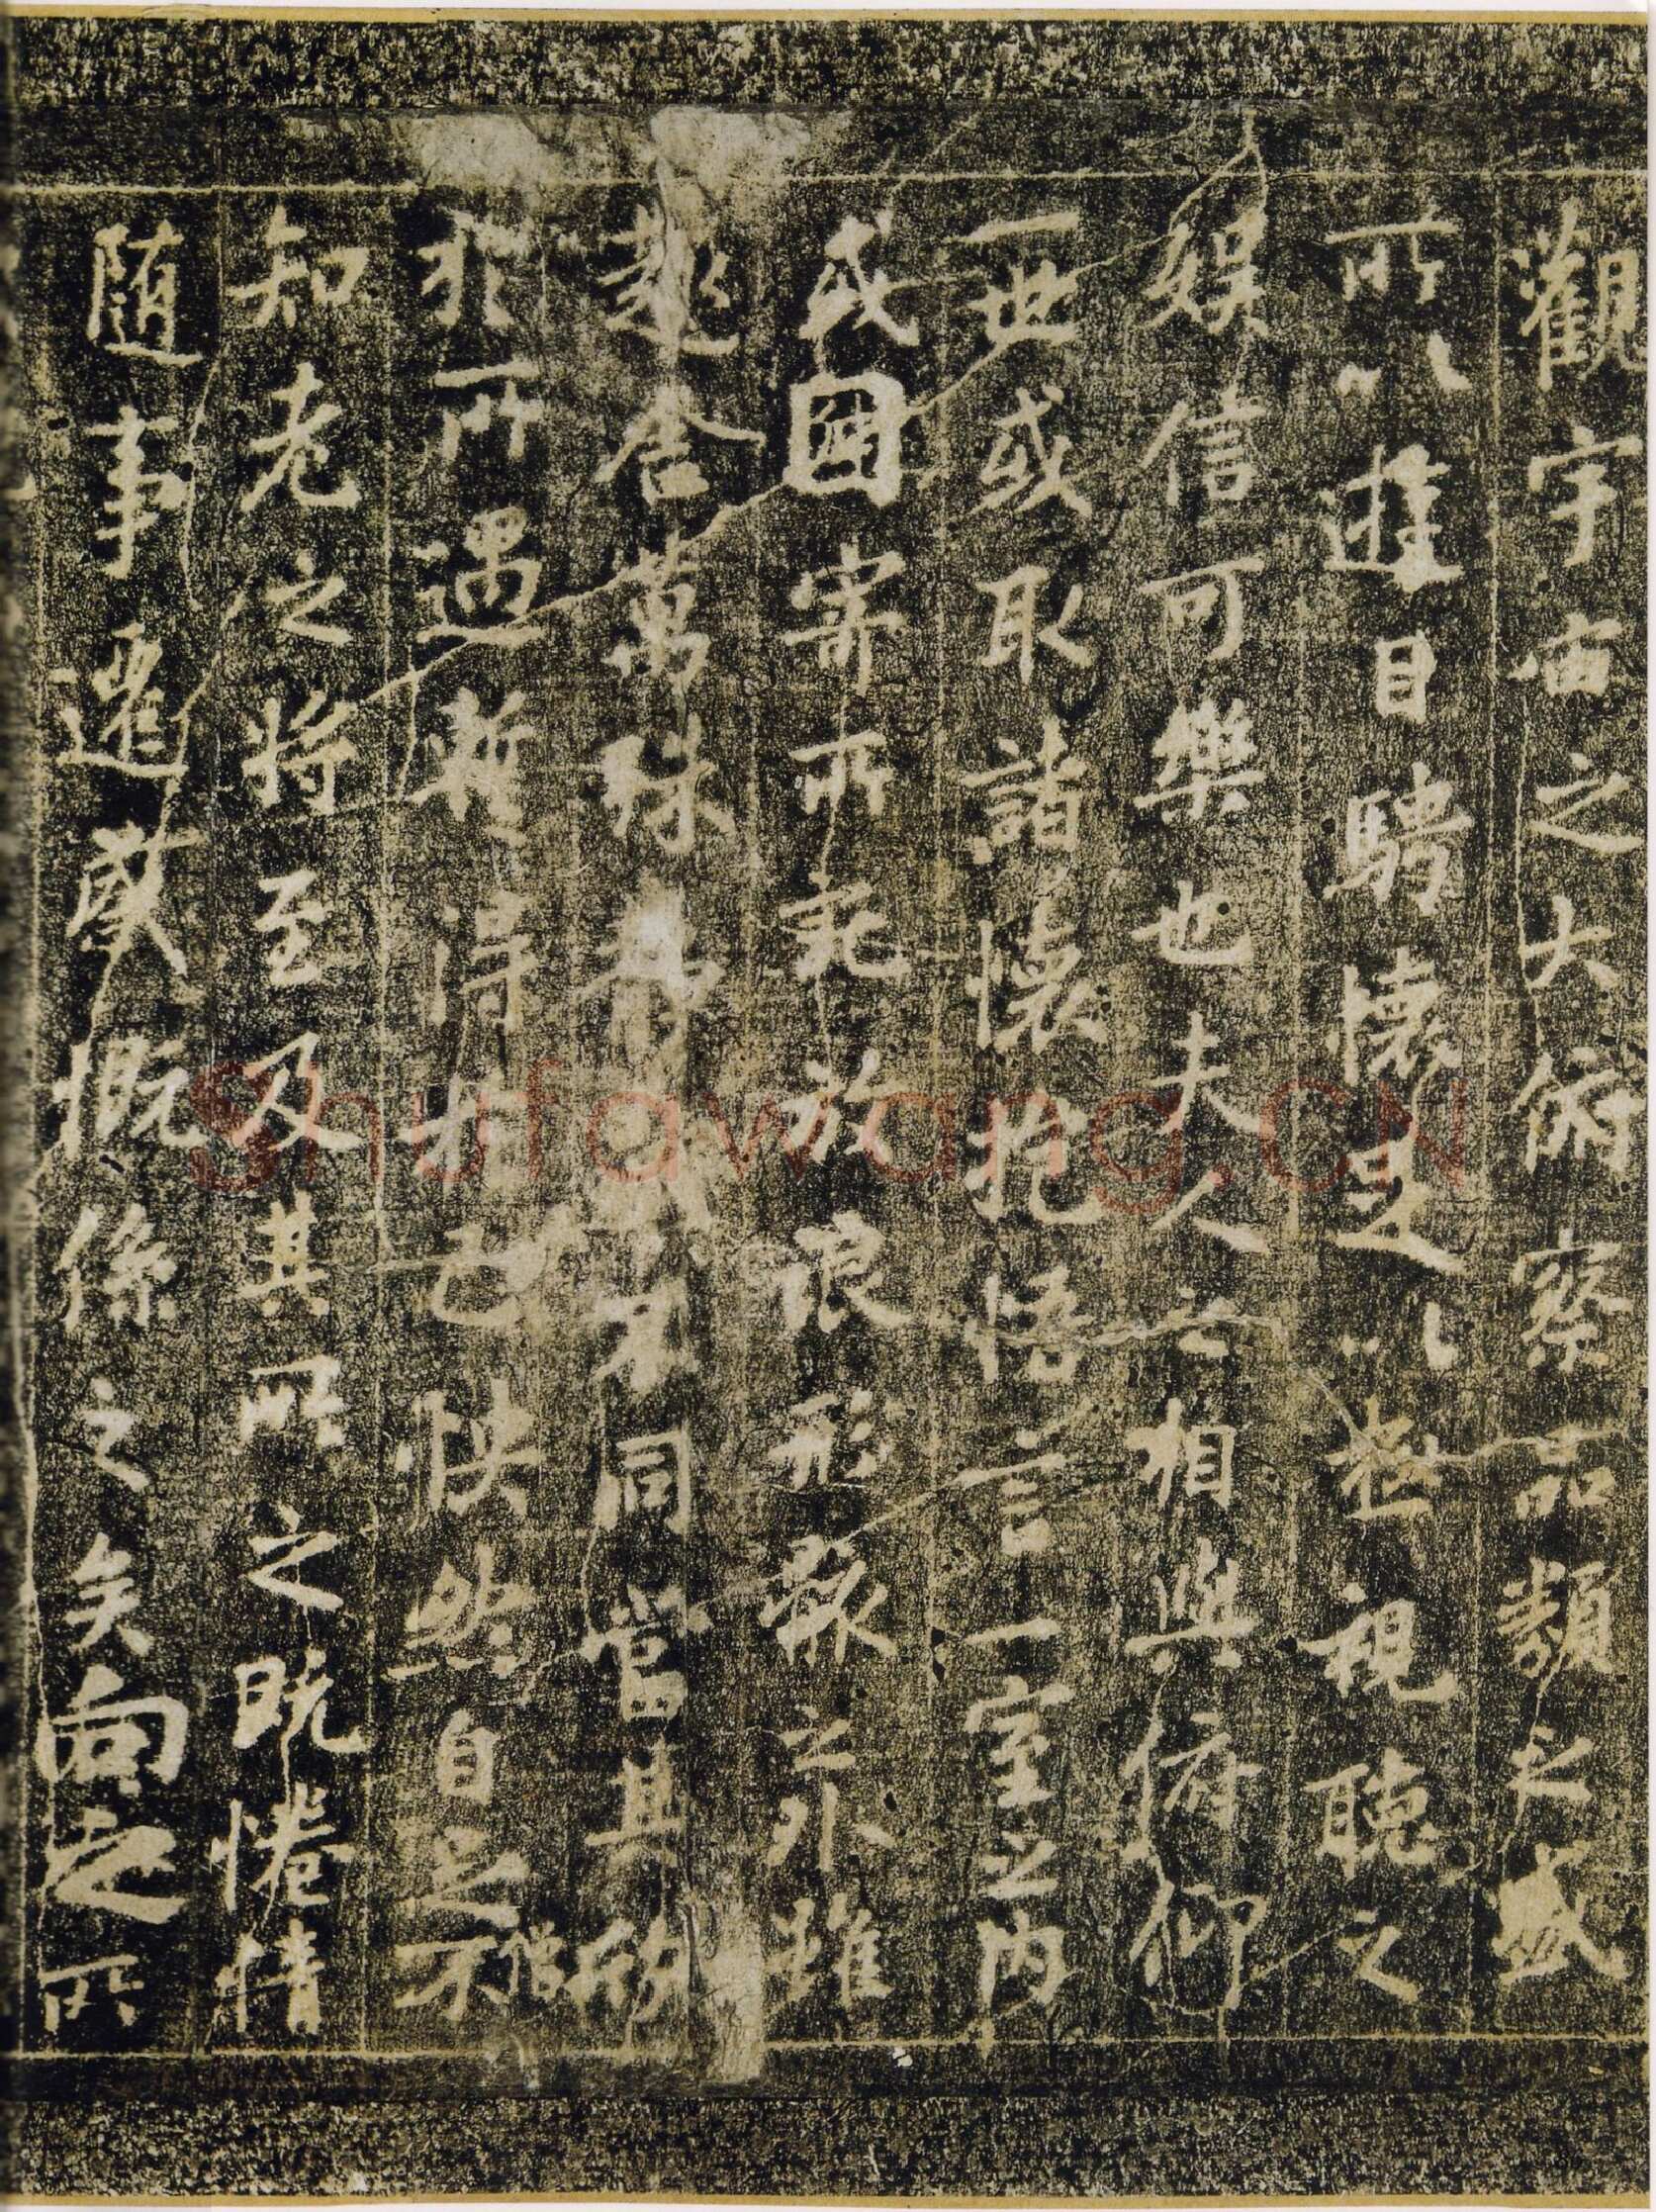 觀宇宙之大俯察品類之盛
所以遊目騁懷足以極視聽之
娛信可樂也夫人之相與俯仰
一世或取諸懷抱悟言一室之內
或因寄所託放浪形骸之外雖
趣舍萬殊靜躁不同當其欣
僧
於所遇暫得於己怏然自足不
知老之將至及其所之既惓情
隨事遷感慨係之矣向之所
Shufawang.CN